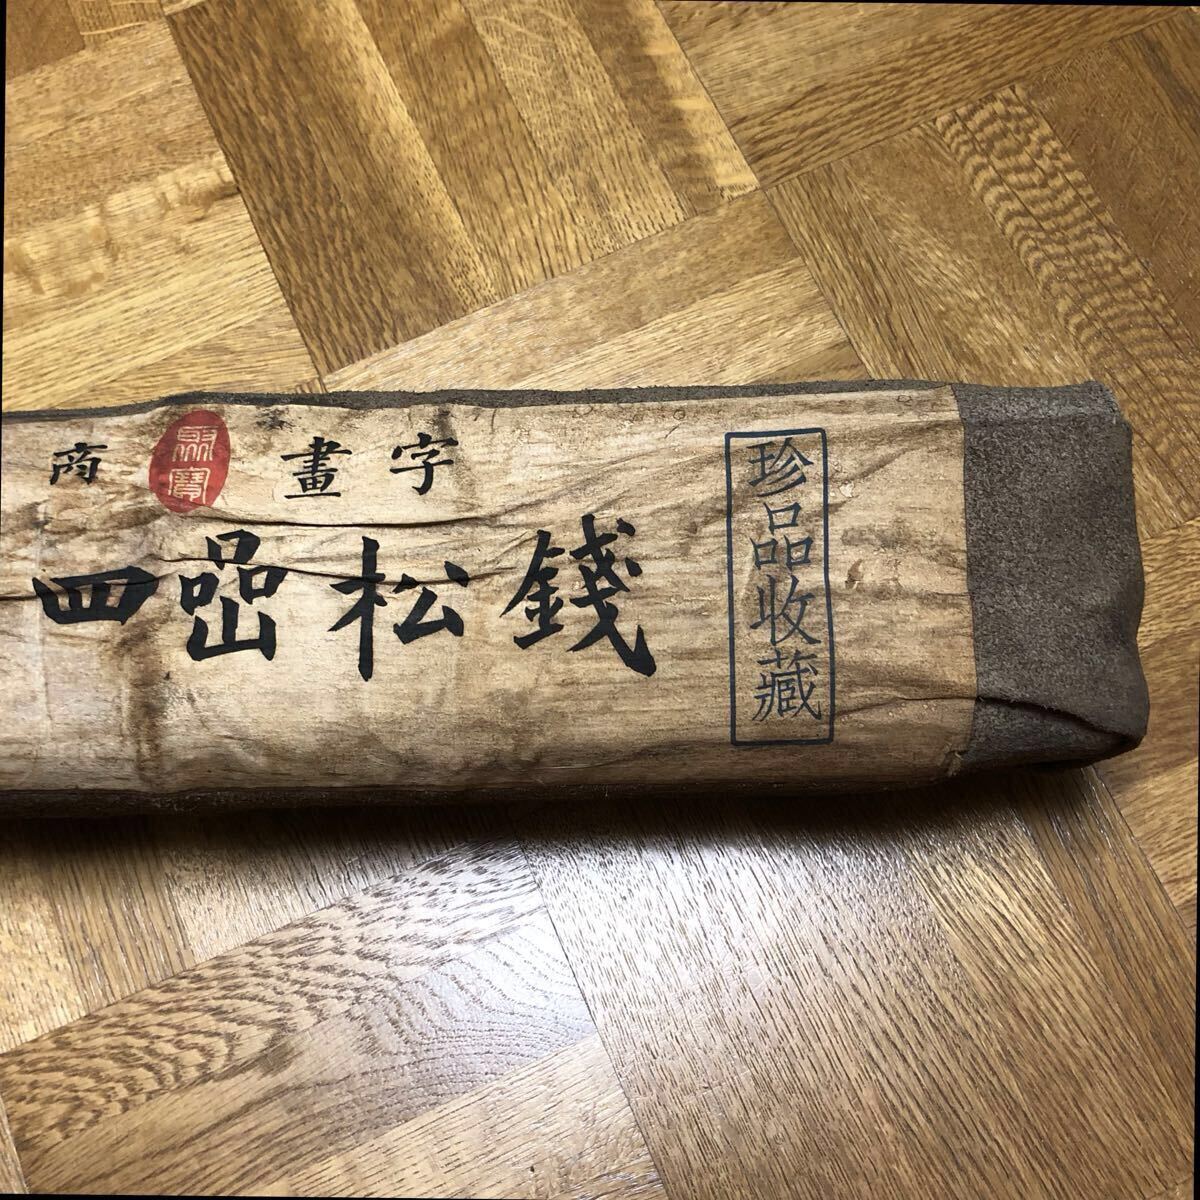 珍品收藏
字畫商
錢松嵒四